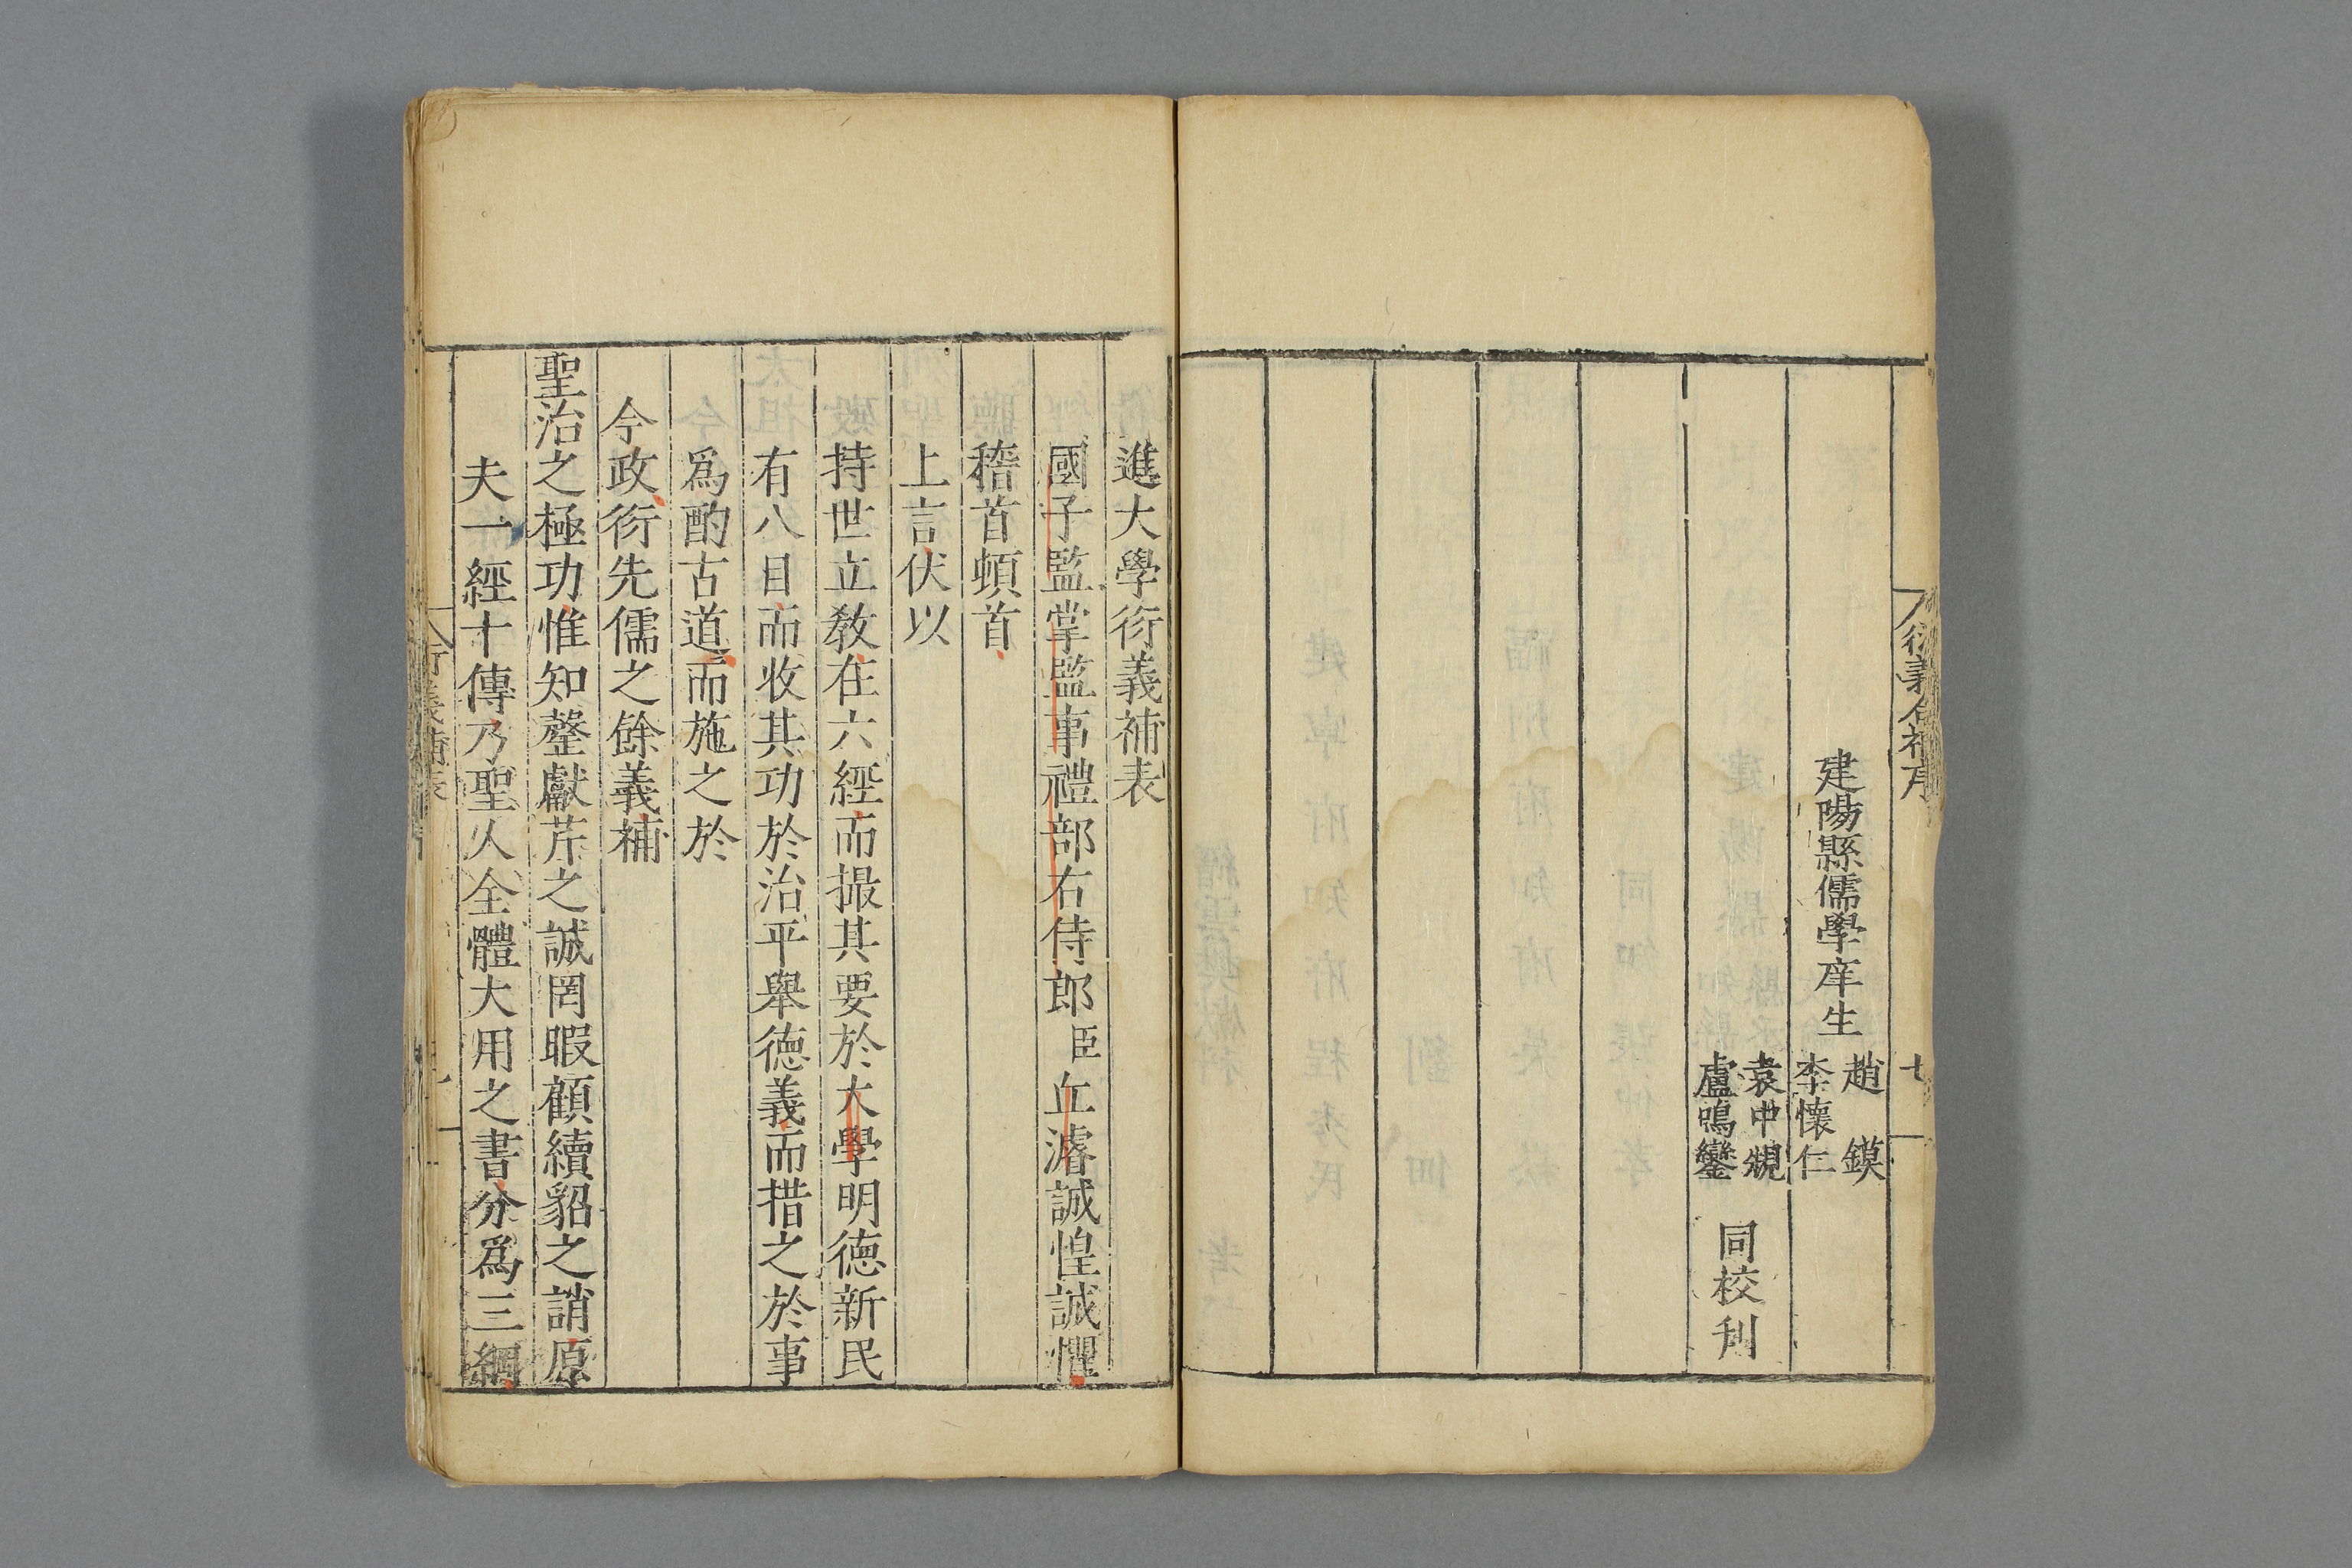 建陽縣儒學庠生
趙鏌
李懷仁
袁中規
盧鳴鑾
同校刋
進大學衍義補表
國子監掌監事禮部右侍郎臣丘濬誠惶誠懼
稽首頓首
上言伏以
持世立敎在六經而撮其要於大學明德新民
有八目而收其功於治平舉德義而措之於事
爲酌古道而施之於
今政衍先儒之餘義補
聖治之極功惟知罄獻芹之誠罔暇顧續貂之誚原
夫一經十傳乃聖人全體大用之書分爲三綱